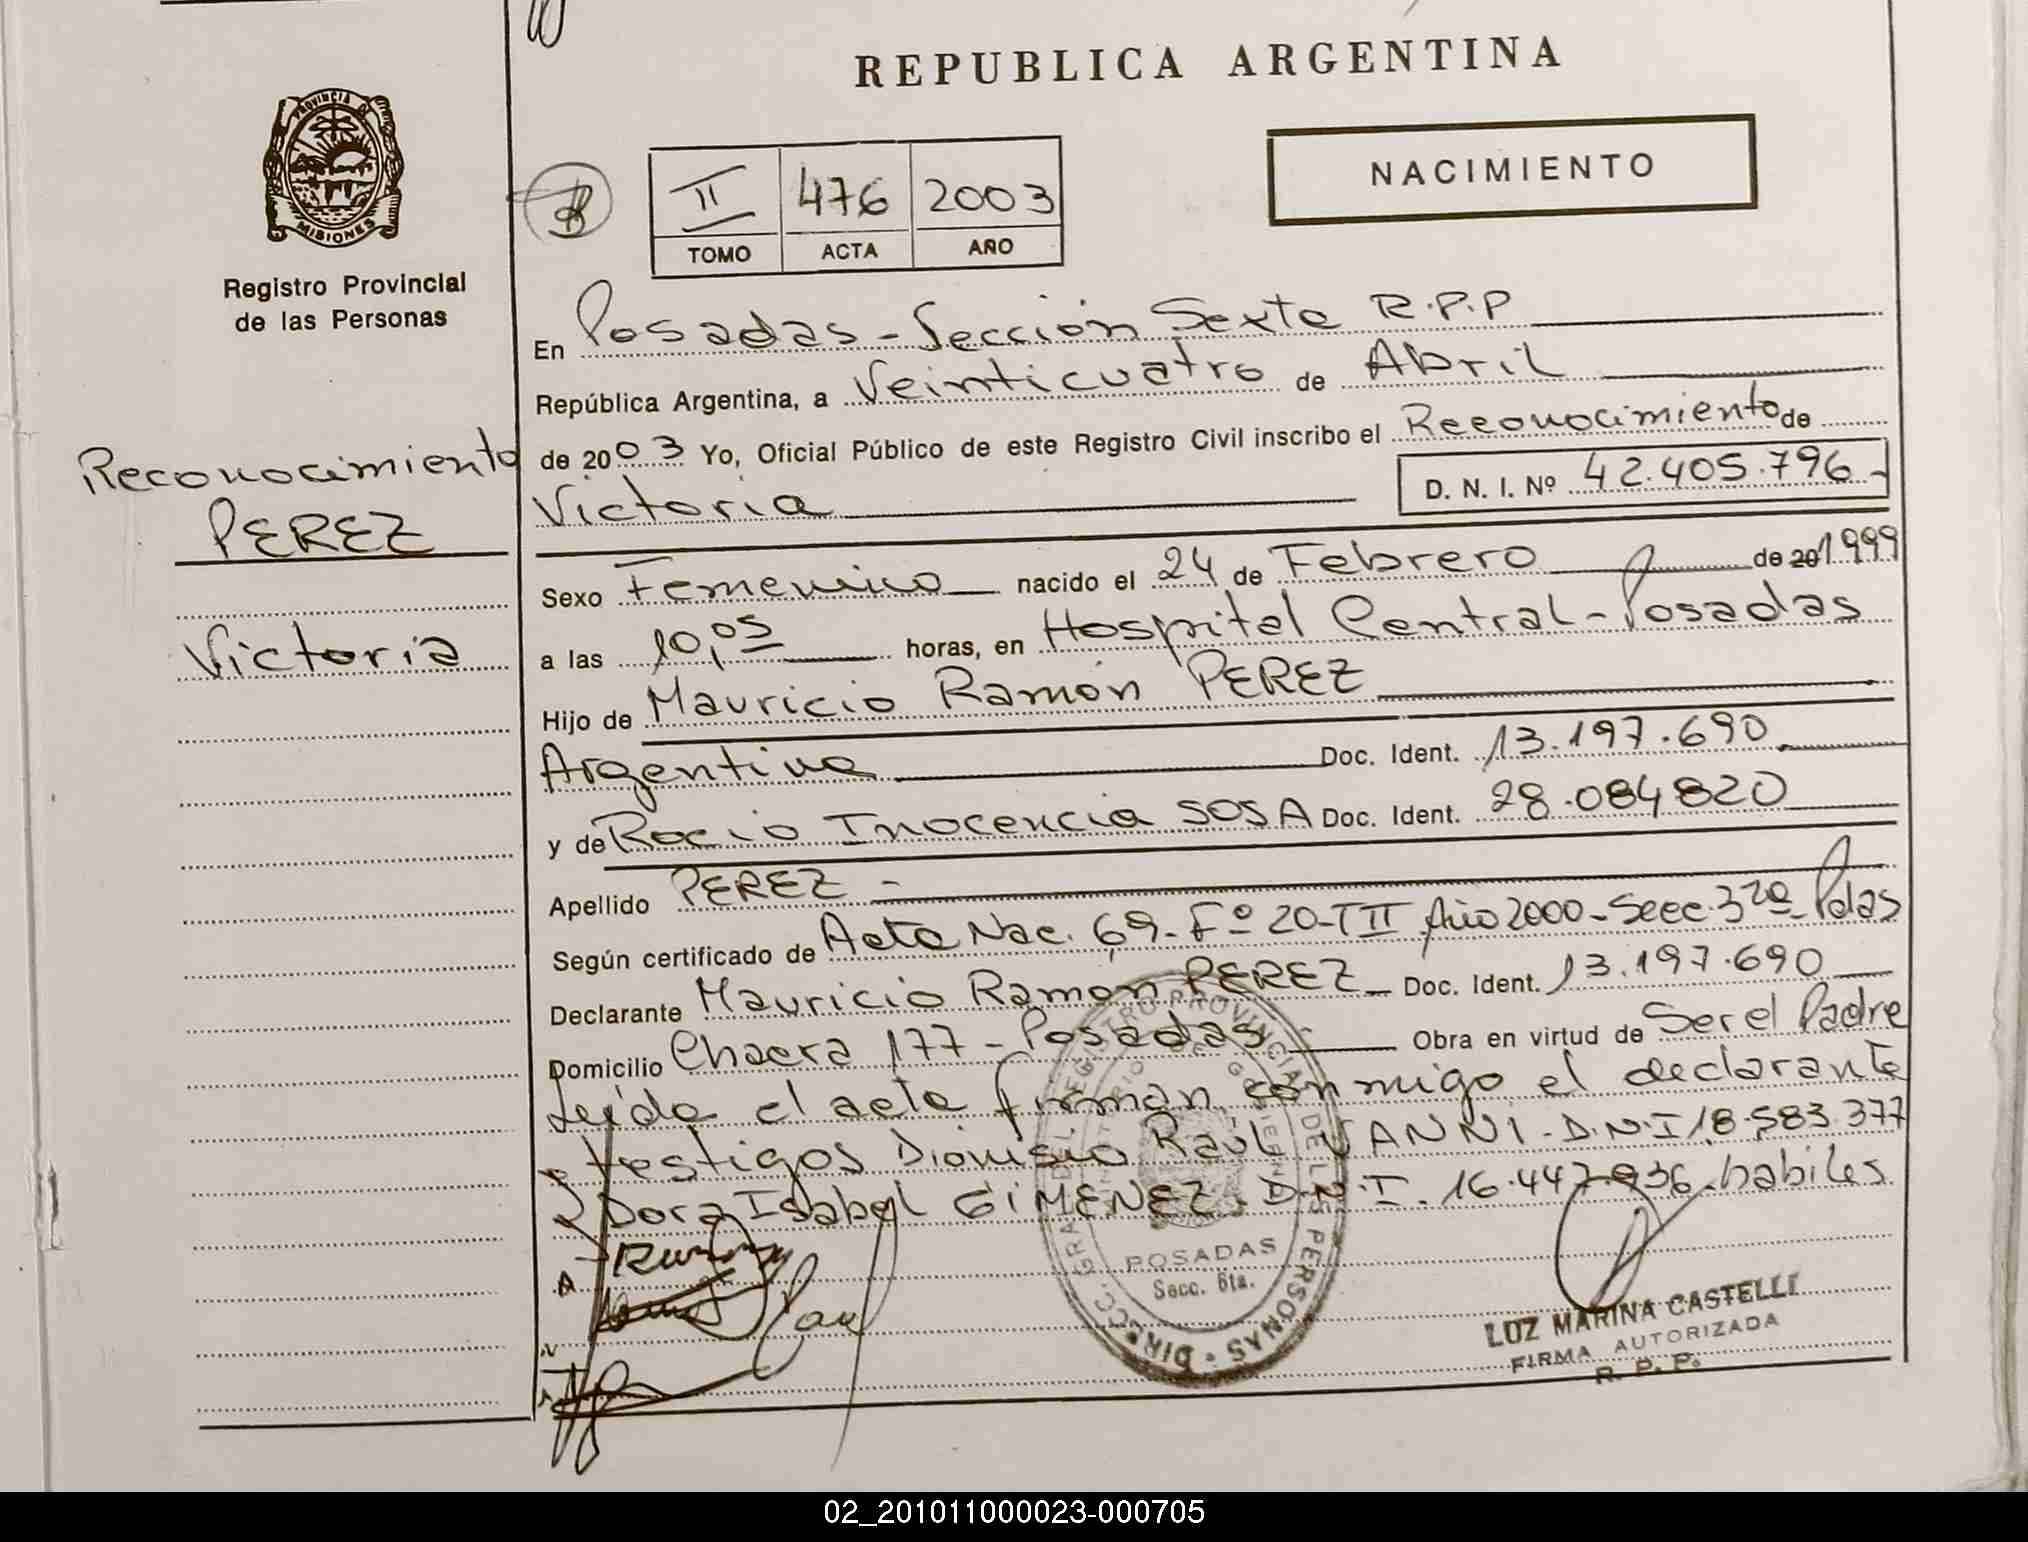 REPUBLICA ARGENTINA
NACIMIENTO
PROVINCIA DE
MISIONES
Registro Provincial
de las Personas
II 476 2003
TOMO ACTA AÑO
Reconocimiento
PEREZ
Victoria
En Posadas - Sección Sexta R.P.P
República Argentina, a Veinticuatro de Abril
de 2003 Yo, Oficial Público de este Registro Civil inscribo el Reconocimiento de
Victoria D. N. I. Nº 42.405.796
Sexo Femenino nacido el 24 de Febrero de 201999
a las 10,05 horas, en Hospital Central - Posadas
Hijo de Mauricio Ramón PEREZ
Argentina Doc. Ident. 13.197.690
y de Rocio Inocencia SOSA Doc. Ident. 28.084820
Apellido PEREZ -
Según certificado de Acta Nac. 69 - Fº 20 - T II Año 2000 - Secc. 3ra - Pdas
Declarante Mauricio Ramon PEREZ - Doc. Ident. 13.197.690
Domicilio Chacra 177 - Posadas - Obra en virtud de Ser el Padre
Leída el acta firman conmigo el declarante
testigos Dionisio Raúl VANNI - D.N.I 18.583.377
Dora Isabel GIMENEZ. D.N.I. 16.447.936. habiles
DIRECC. GRAL. DEL REGISTRO PROVINCIAL DE LAS PERSONAS
POSADAS
Secc. 6ta.
LUZ MARINA CASTELLI
FIRMA AUTORIZADA
R. P. P.
02_201011000023-000705